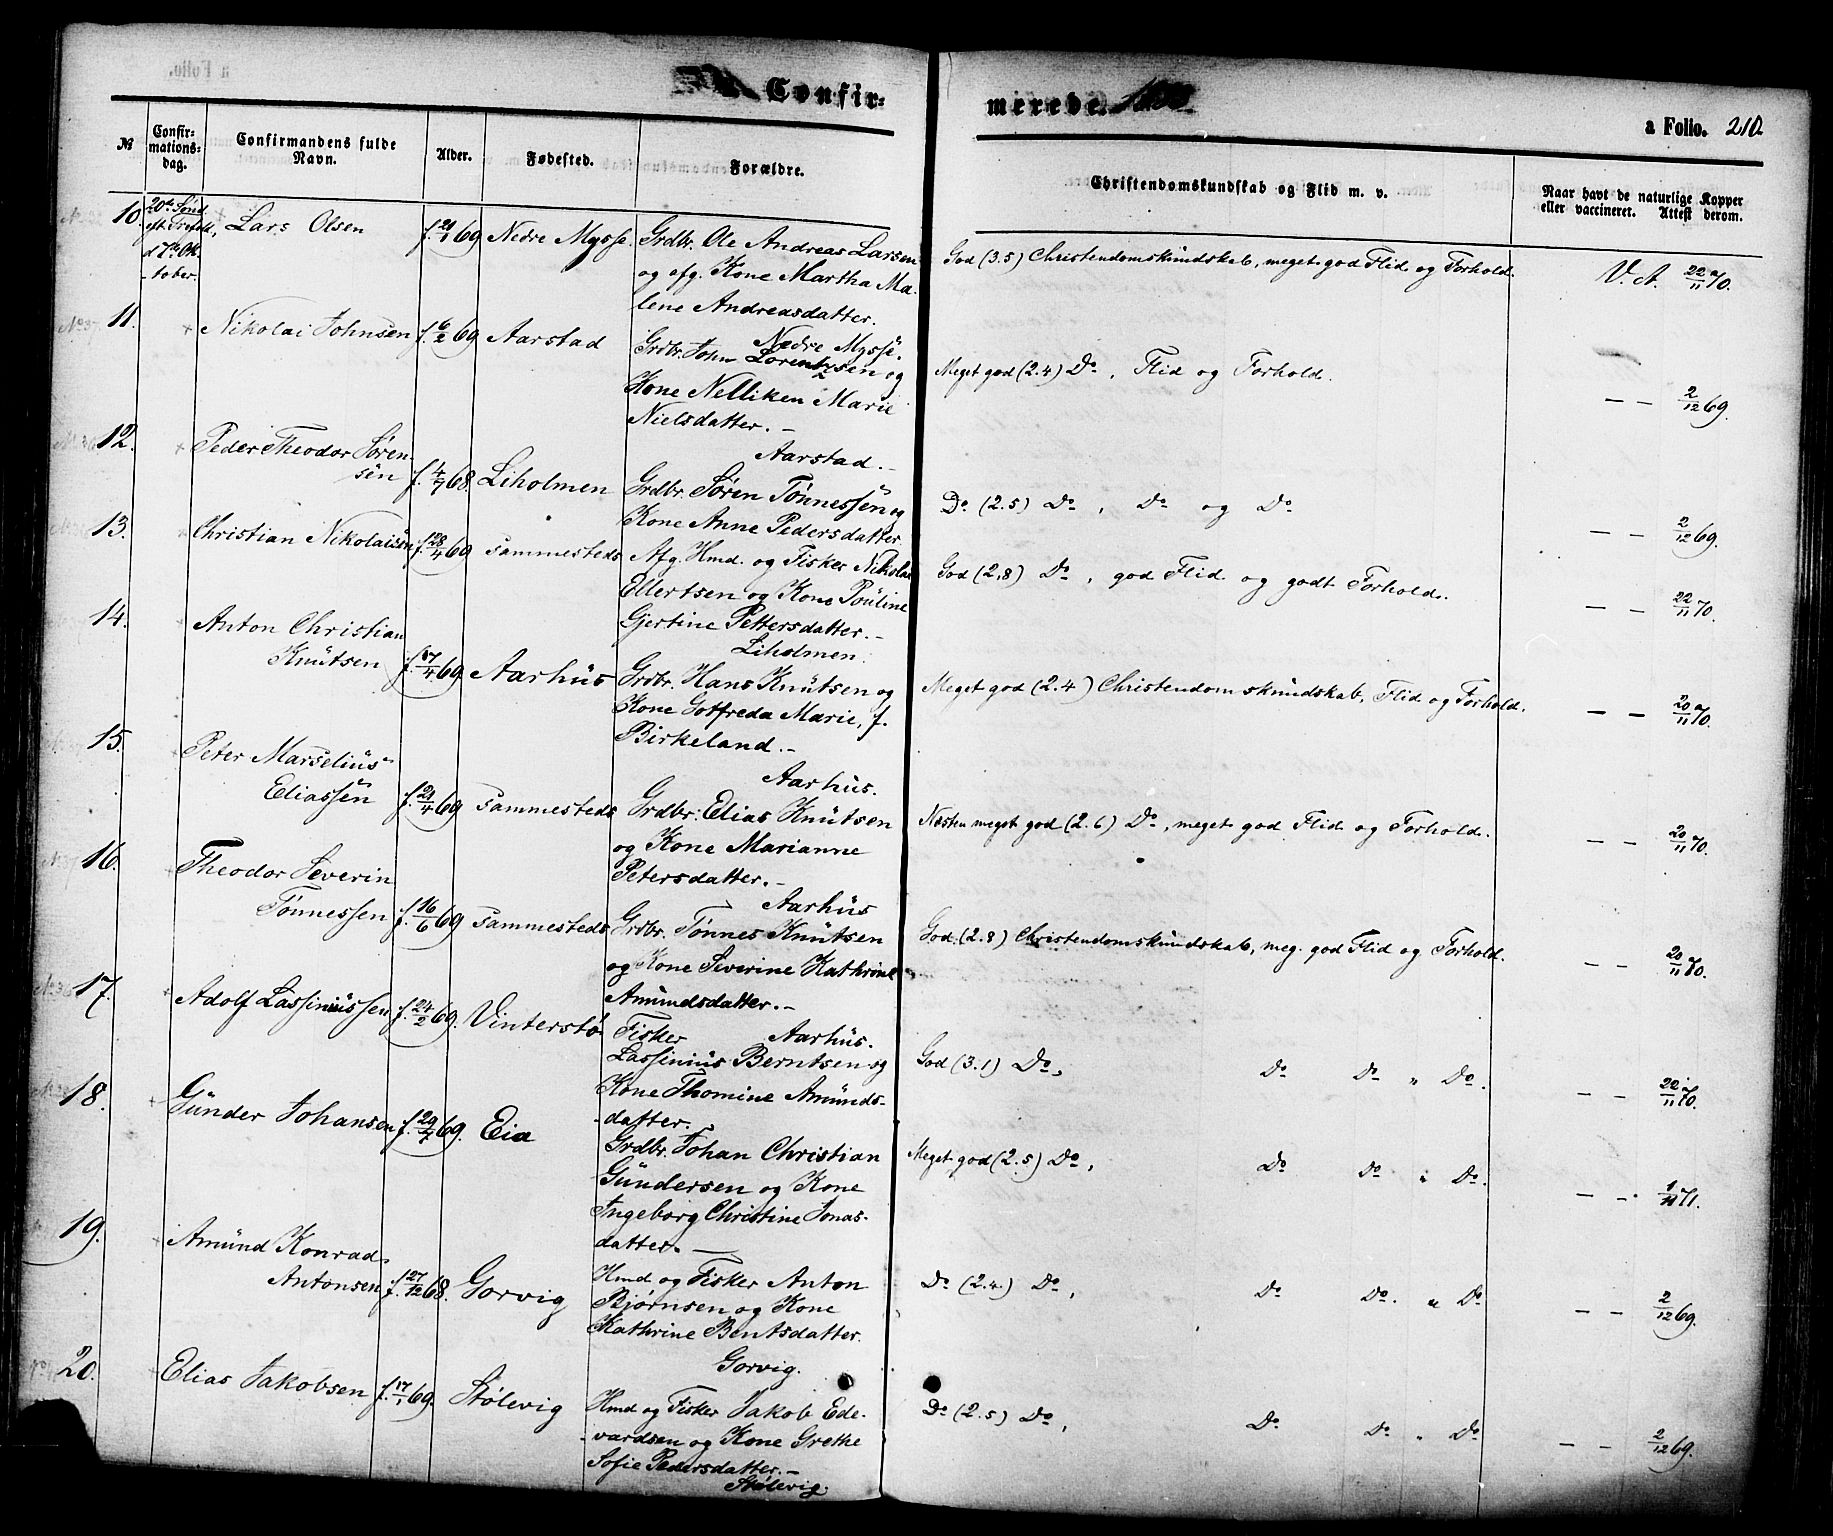 Confir-
merede.
a Folio. 210
№
Confir-
mations-
dag.
Confirmandens fulde
Navn.
Alder.
Fødested.
Forældre.
Christendomskundskab og Flid m. v.
Naar havt de naturlige Kopper
eller vaccineret. Attest derom.
10. 20de Sønd. Lars Olsen f. 21/1 69 Nedre Mysse. Grdbr. Ole Andreas Larsen God (3.5) Christendomskundskab, meget god Flid og Forhold. V. A. 22/11 70.
eft. Trefold.,
d 7de Ok-
tober.
og afg. Kone Martha Ma-
lene Andreasdatter.
Nedre Mysse.
11. Nikolai Johnsen f. 6/2 69 Aarstad Grdbr. John Lorentzsen og Meget god (2.4) Do, Flid og Forhold. — — 2/12 69.
Kone Nelliken Marie
Nielsdatter. —
Aarstad. —
12. Peder Theodor Søren-
sen f. 4/7 68. Liholmen Grdbr. Søren Tønnessen og Do (2.5) Do, Do og Do — — 2/12 69.
Kone Anne Pedersdatter
13. Christian Nikolaisen f. 28/4 69 sammesteds Afg. Hmd. og Fisker Nikolai God (2,8) Do, god Flid og godt Forhold. — — 22/11 70.
Ellertsen og Kone Pouline
Gjertine Pettersdatter. —
Liholmen.
14. Anton Christian
Knutsen f. 17/4 69 Aarhus Grdbr. Hans Knutsen og Meget god (2.4) Christendomskundskab, Flid og Forhold. — — 20/11 70.
Kone Gotfreda Marie, f.
Birkeland. —
Aarhus.
15. Peter Marselius
Eliassen f. 21/4 69 sammesteds Grdbr. Elias Knutsen Næsten meget god (2.6) Do, meget god Flid og Forhold. — — 20/11 70.
og Kone Marianne
Petersdatter. —
Aarhus
16. Theodor Severin
Tønnessen f. 16/6 69 sammesteds Grdbr. Tønnes Knutsen God (2.8) Christendomskundskab, meg. god Flid og Forhold. — — 20/11 70.
og Kone Severine Kathrine
Amundsdatter. —
Aarhus.
17. Adolf Lassiniussen f. 24/2 69. Vinterstø Fisker God (3.1) Do, Do Do " Do. — — 22/11 70.
Lassinius Berntsen og
Kone Thomine Amunds-
datter.
18. Gunder Johansen f. 29/7 69. Eia Grdbr. Johan Christian Meget god (2.5) Do, Do Do " Do. — — 1/11 71.
Gundersen og Kone
Ingeborg Christine Jonas-
datter. —
19. Amund Konrad
Antonsen f. 27/12 68. Gorvig Hmd. og Fisker Anton Do (2.4.) Do, Do Do. " Do — — 2/12 69.
Bjørnsen og Kone
Kathrine Bentsdatter.
Gorvig.
20. Elias Jakobsen f. 17/1 69. Stølevig Hmd og Fisker Jakob Ede- Do (2.5) Do, Do Do " Do — — 2/12 69.
vardsen og Kone Grethe
Sofie Pedersdatter. —
Stølevig.